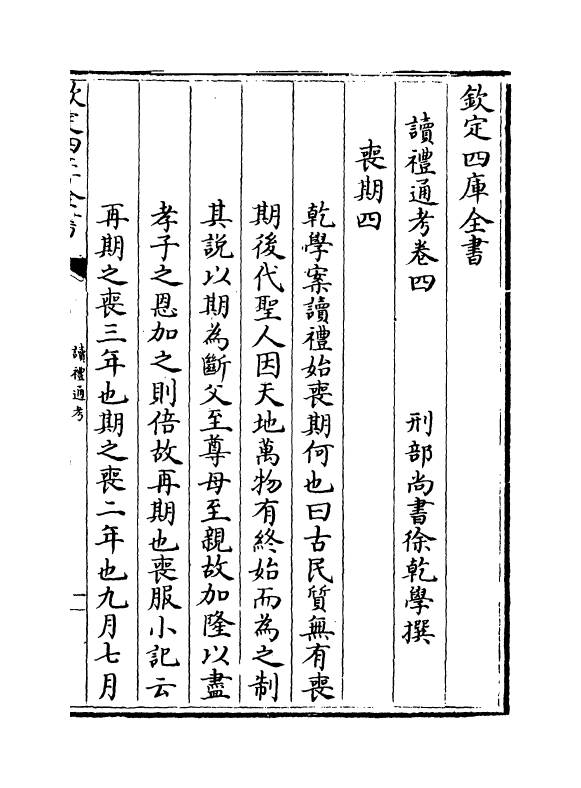 欽定四庫全書
讀禮通考卷四 刑部尚書徐乾學撰
喪期四
乾學案讀禮始喪期何也曰古民質無有喪
期後代聖人因天地萬物有終始而為之制
其說以期為斷父至尊母至親故加隆以盡
孝子之恩加之則倍故再期也喪服小記云
再期之喪三年也期之喪二年也九月七月
欽定四庫全書
讀禮通考
一